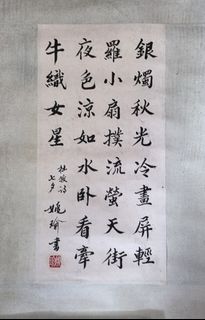 銀燭秋光冷畫屏輕
羅小扇撲流螢天街
夜色涼如水卧看牽
牛織女星
杜牧詩
七夕
姚瑜書